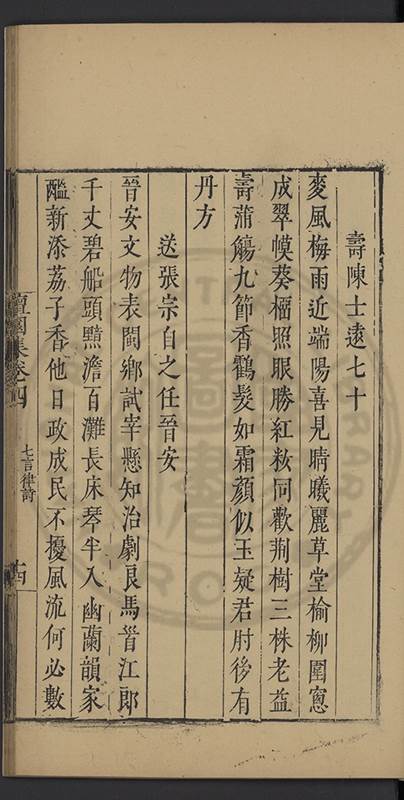 壽陳士遠七十
麥風梅雨近端陽喜見晴曦麗草堂榆柳圍窻
成翠幙葵榴照眼勝紅粧同歡荆樹三株老益
壽蒲觴九節香鶴髮如霜顏似玉疑君肘後有
丹方
送張宗自之任晉安
晉安文物表閩鄉試宰懸知治劇良馬首江郎
千丈碧船頭黯澹百灘長床琴半入幽蘭韻家
醖新添荔子香他日政成民不擾風流何必數
集卷四
七言律詩